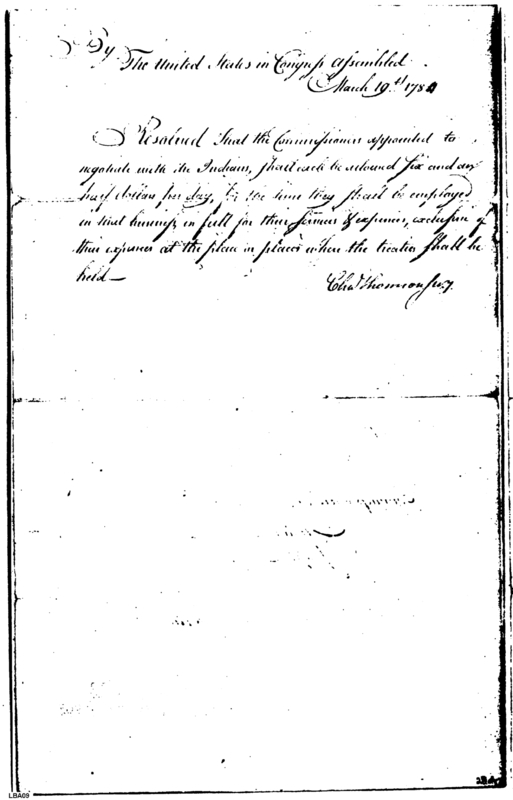 By
The United States in Congress assembled
March 19th 1784
Resolved That the Commissioners appointed to
negotiate with the Indians, shall each be allowed six and an
half dollars per day, for the time they shall be employed
in that business in full for their services & expences, exclusive of
their expences at the place or places where the treaties shall be
held—
Chas Thomson Secy.
LBA09